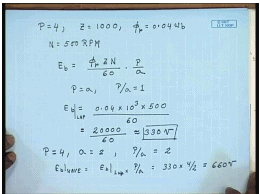 P=4, Z=1000, ϕp=0.04 Wb
N = 500 RPM
Eb = ϕp Z N / 60 . P / a
P=a, P/a = 1
Eb|LAP = 0.04 × 10³ × 500 / 60
= 20000 / 60 ≈ 330 V
P=4, a = 2, P/a = 2
Eb|WAVE = Eb|Lap × P/a = 330 × 4/2 = 660 V